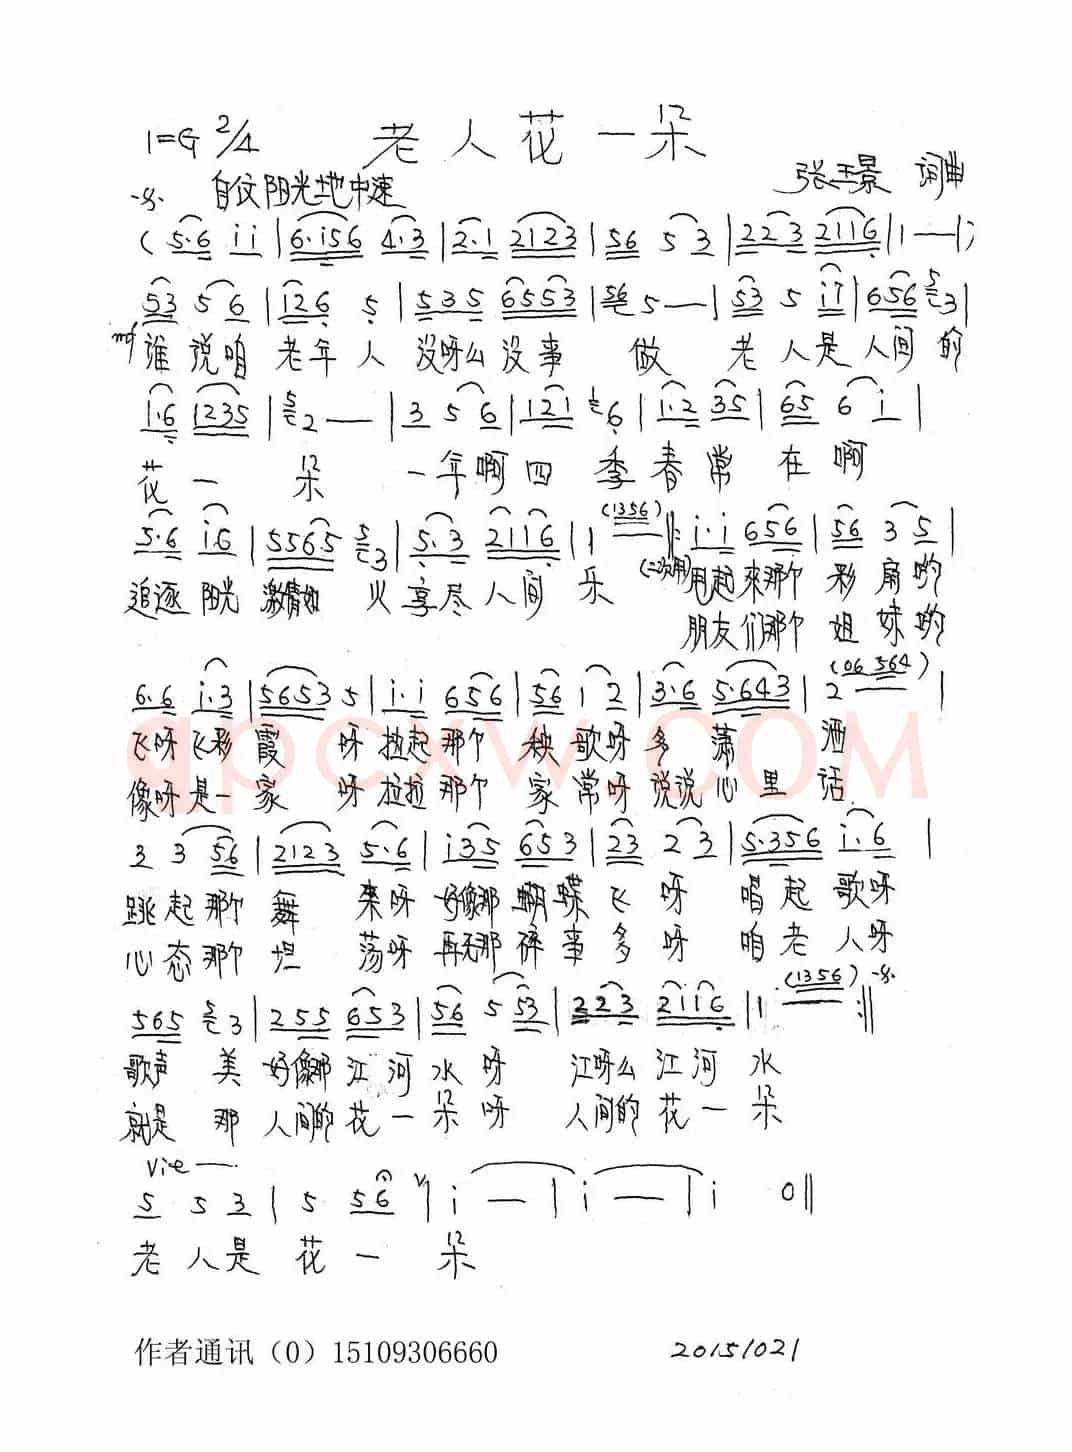 1=G 2/4 老人花一朵
自仪阳光地中速 张玉景 词曲
( 5·6 i i | 6·i56 4·3 | 2·1 2123 | 56 5 3 | 223 2116 | 1 — | )
53 5 6 | 126 5 | 535 6553 | 56 5 — | 53 5 i7 | 656 5 3 |
mf 谁说咱老年人没呀么没事做老人是人间的
1·6 1235 | 5 2 — | 3 5 6 | 121 6 | 1·2 35 | 65 6 i |
花一朵一年啊四季春常在啊
5·6 i6 | 5565 5 3 | 5·3 2116 | 1 (1356) :‖: i·i 656 | 56 3 5 |
追逐阳光激情如火享尽人间乐(二次用)甩起来那个彩扇哟
朋友们那个姐妹哟
6·6 i·3 | 5653 5 | i·i 656 | 56 1 2 | 3·6 5·643 | 2 — (06 564) |
飞呀飞彩霞呀拉起那个秧歌呀多潇洒
像呀是一家呀拉拉那个家常呀说说心里话
3 3 56 | 2123 5·6 | i35 653 | 23 2 3 | 5·356 i·6 |
跳起那个舞来呀好像那蝴蝶飞呀唱起歌呀
心态那个坦荡呀再无那碎事多呀咱老人呀
565 5 3 | 255 653 | 56 5 53 | 223 2116 | 1 — (1356) :‖
歌声美好像那江河水呀江呀么江河水
就是那人间的花一朵呀人间的花一朵
5 5 3 | 5 56 | i — | i — | i 0 ‖
老人是花一朵
作者通讯（0）15109306660 20151021
qpcxw.COM